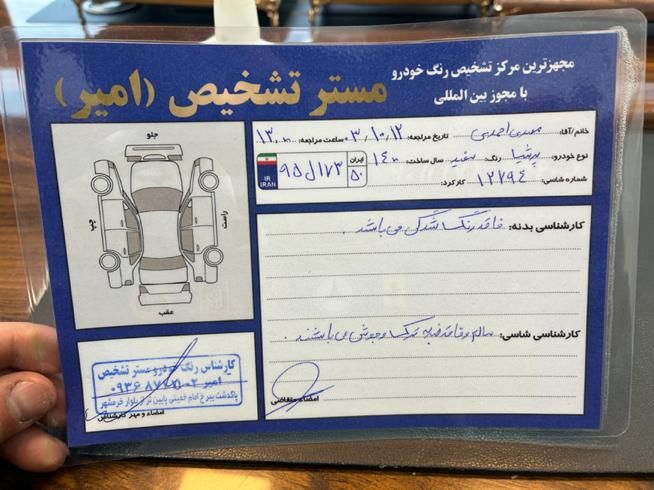 مجهزترین مرکز تشخیص رنگ خودرو
با مجوز بین المللی
مستر تشخیص (امیر)
خانم/آقا: مهدی احمدی تاریخ مراجعه: ۳/۱۰/۱۲ ساعت مراجعه: ۱۳
نوع خودرو: پرشیا رنگ: سفید سال ساخت: ۱۴۰۰
ایران ۵۰ ۹۵ل۱۷۳ I.R. IRAN
شماره شاسی: ۱۲۲۹۴ کارکرد:
جلو
چپ
راست
عقب
کارشناسی بدنه: فاقد رنگ شدگی می باشد.
کارشناسی شاسی: سالم و فاقد ضربه ترک و جوش می باشند.
امضاء متقاضی
کارشناس رنگ خودرو مستر تشخیص
امیر
پاکدشت بلوار خرمشهر
امضاء و مهر کارشناس